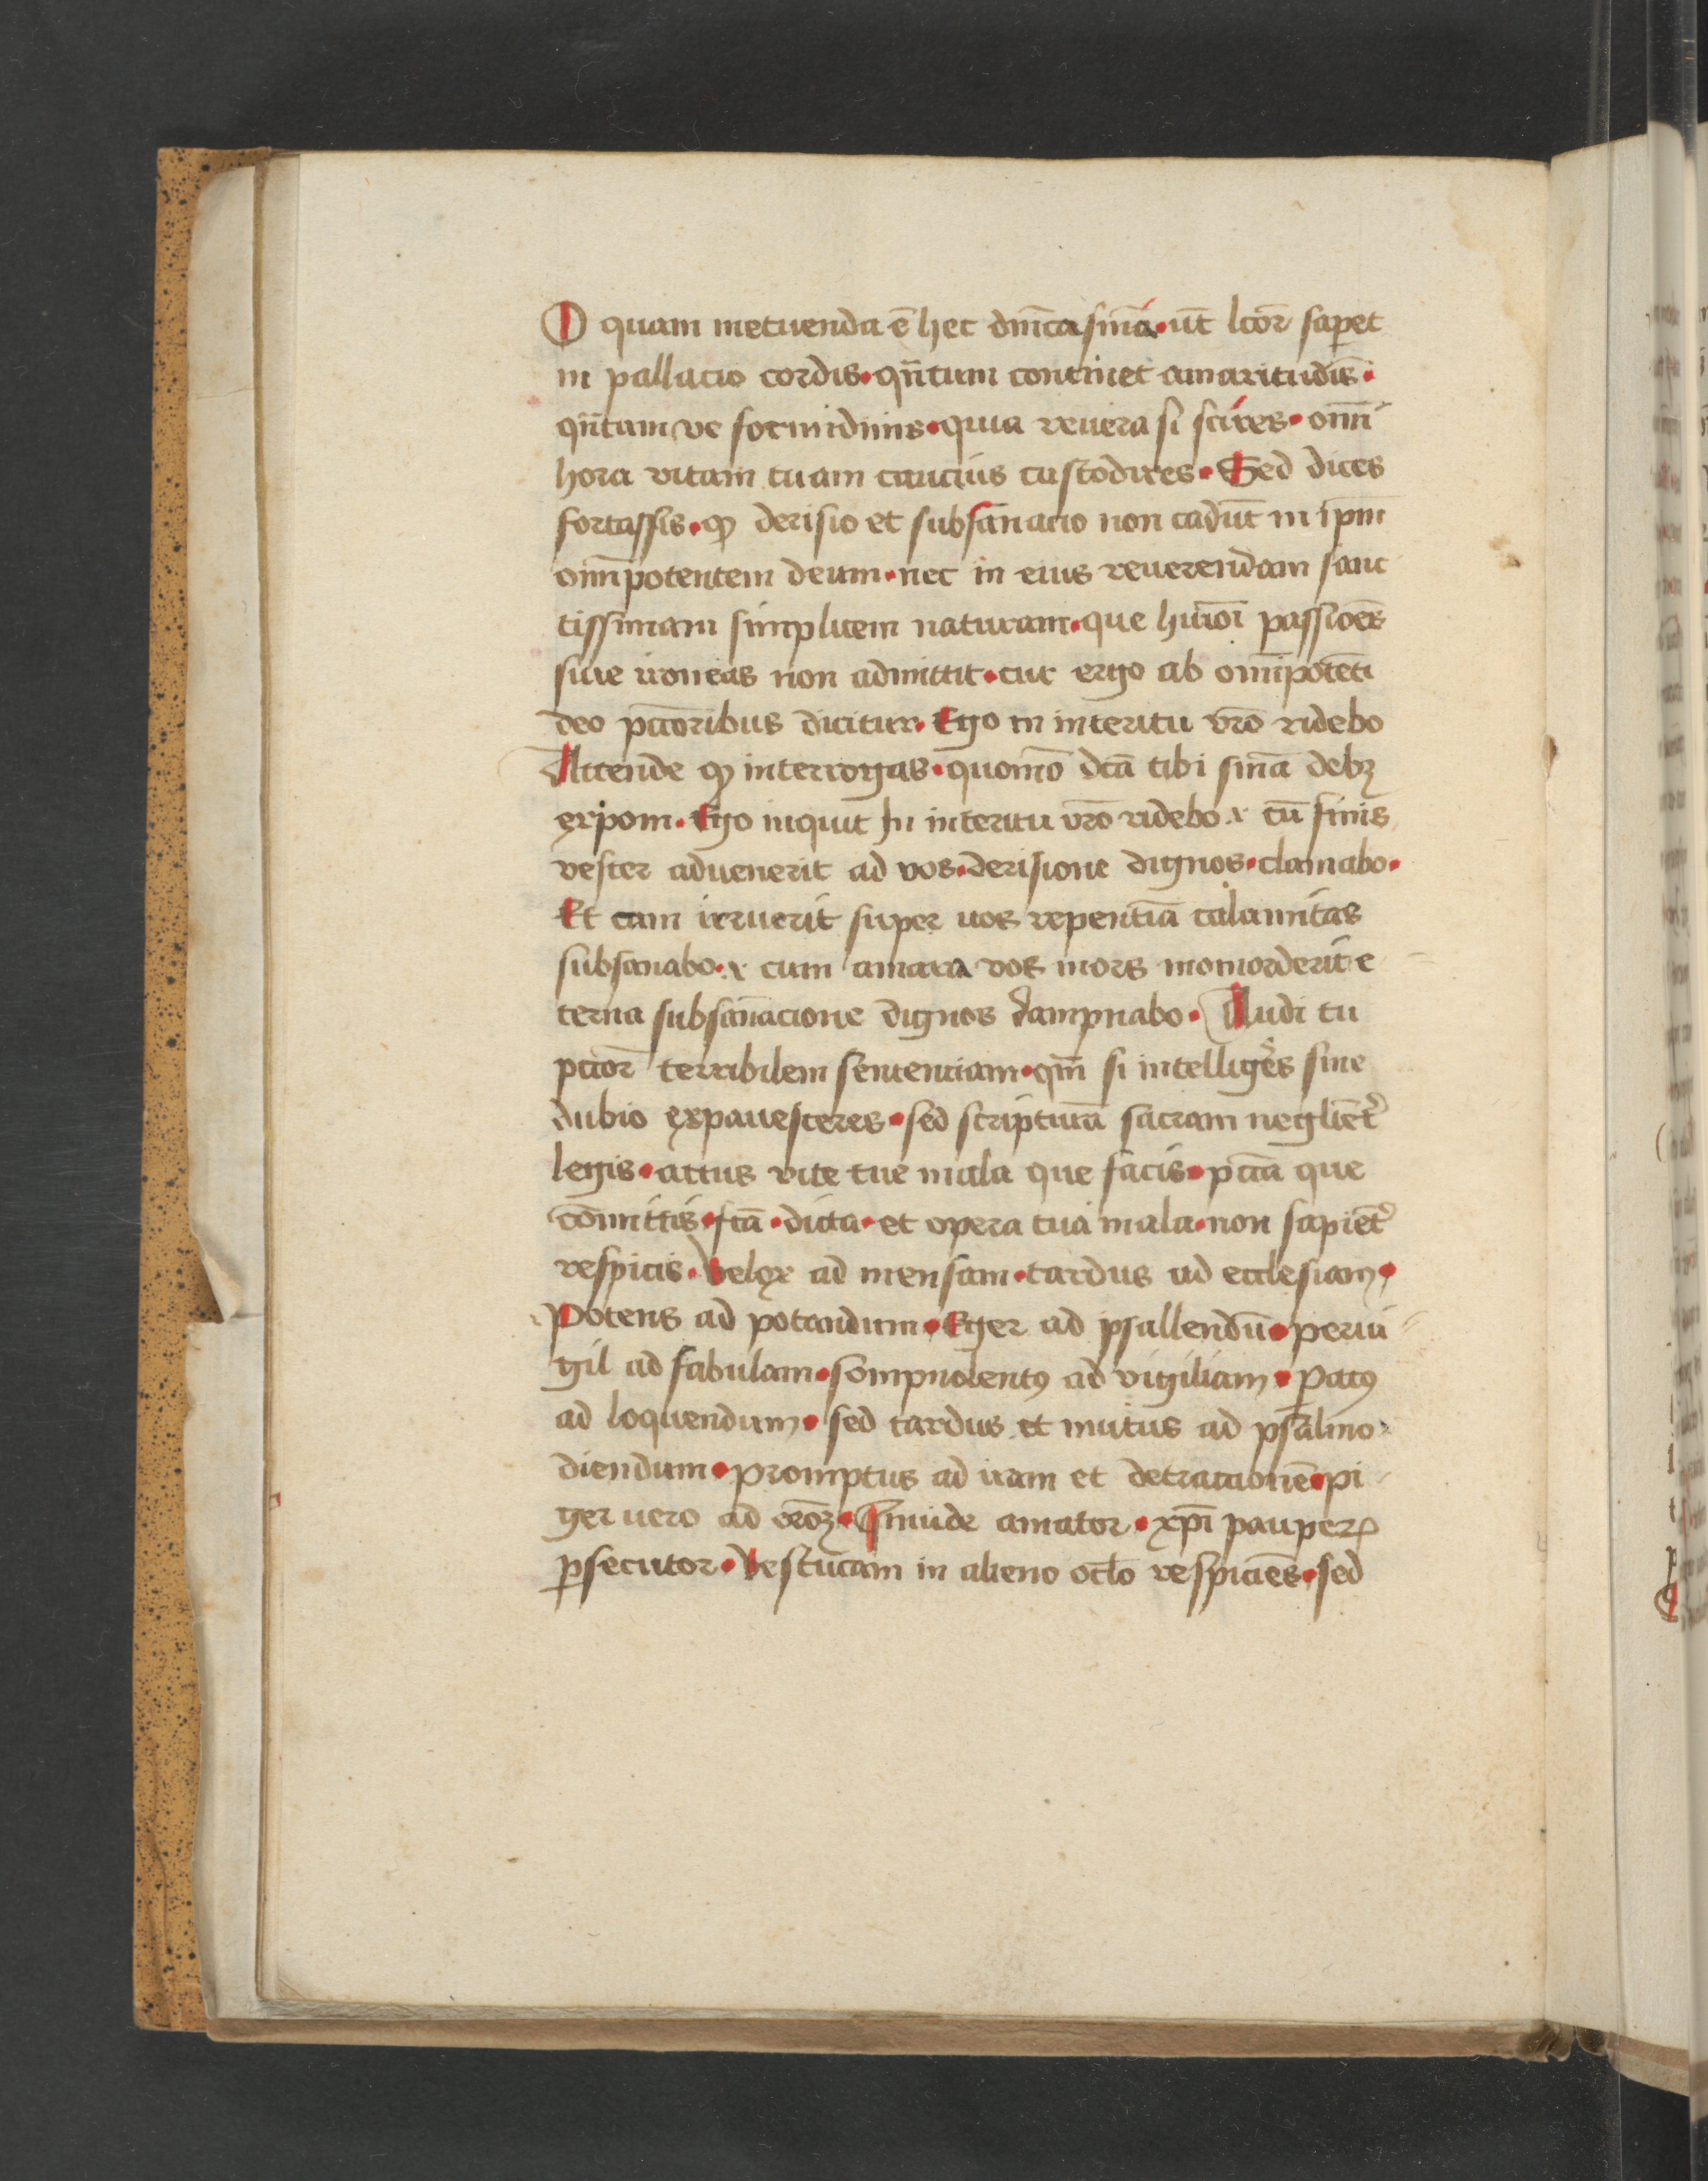 O quam metuenda ē hec dn̄ica sn̄ia · ut̄ lcōr saperet
in pallacio cordis · qn̄tum continet amaritudīs ·
qn̄tam ve formidinis · quia revera si scires · om̄i
hora vitam tuam caucius custodires · Sed dices
fortassis · ꝙ derisio et subsan̄acio non cadūt in ip̄m
om̄potentem deum · nec in eius reuerendam sanc
tissimam simplicem naturam · que hui᷒mōi passiōes
siue ironeas non admittit · cur ergo ab om̄ipotēti
deo pc̄toribus dicitur · Ego in interitu vr̄o ridebo
Attende ꝙ interrogas · quomō dc̄a tibi sn̄ia debꝫ
exponi · Ego inquit In interitu vr̄o ridebo · cū finis
vester aduenerit ad vos · derisione dignos · clamabo ·
Et cum irruerit super uos repentīa calamitas
subsanabo · cum amara vos mors momorderit e
terna subsan̄acione dignos dampnabo · Audi tu
pc̄tor terribilem sentenciam · qm̄ si intelliges sine
dubio expauesceres · sed scripturā sacram neglīet᷑
legis · actus vite tue mala que facis · pc̄cā que
cōmittis · fc̄ā · dicta · et opera tua mala · non sapiēt᷑
respicis · Velox ad mensam · tardus ad ecclesiam ·
Potens ad potandum · Eger ad psallendū · perui
gil ad fabulam · sompnolentꝰ ad vigiliam · Patꝰ
ad loquendum · sed tardus et mutus ad psalmo
diendum · promptus ad iram et detractionē · pi
ger uero ad orōeꝫ · Inuide amator · xp̄i pauperꝝ
ꝑsecutor · Vestucam in alieno oc̄lo respiciēs · sed